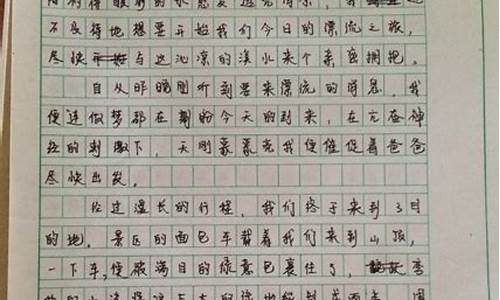 不及待地想要开始我们今日的漂流之旅，
尽快与这沁凉的溪水来个亲密拥抱。
自从昨晚刚听到要来漂流的消息，我
便连做梦都在期盼今天的到来，在亢奋神
经的刺激下，天刚蒙蒙亮我便催促着爸爸
尽快出发。
经过漫长的行程，我们终于来到了目
的地。景区的面包车载着我们来到山顶，
一下车，便被满目的绿意包裹住了，